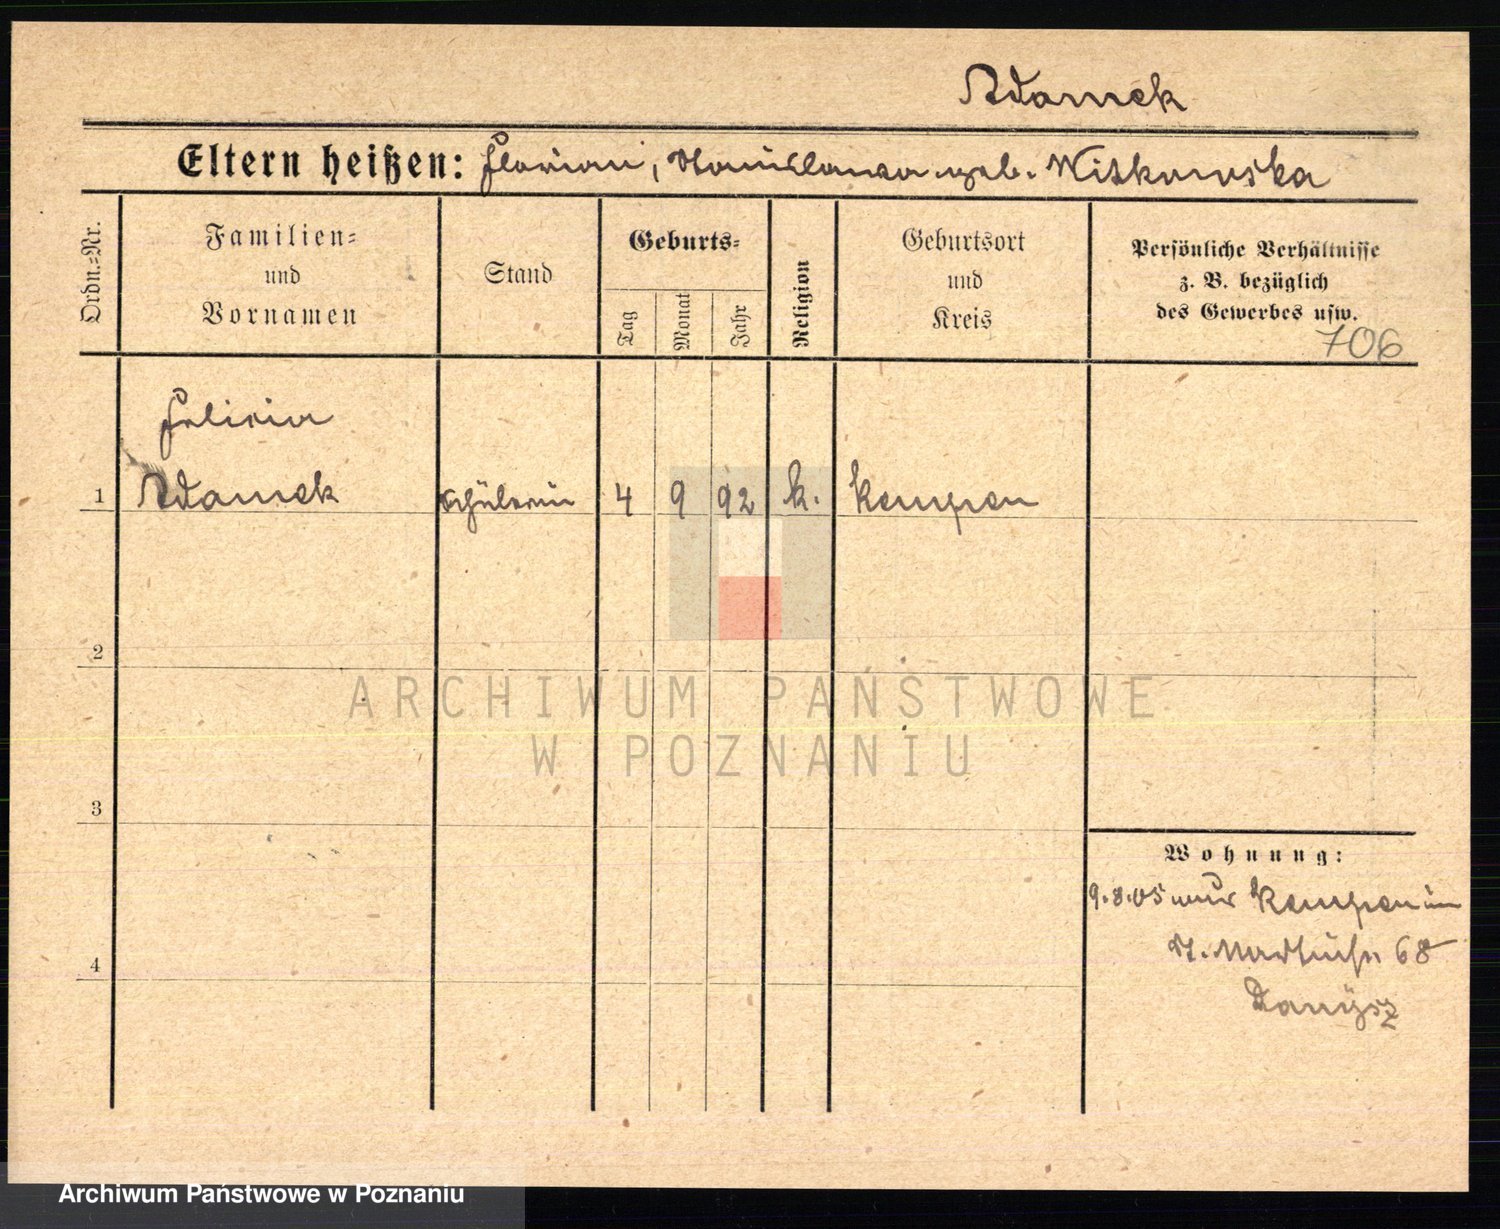 Adamek
Eltern heißen: Florian, Stanislawa geb. Witkowska
Ordn.-Nr.
Familien-
und
Vornamen
Stand
Geburts-
Tag
Monat
Jahr
Religion
Geburtsort
und
Kreis
Persönliche Verhältnisse
z. B. bezüglich
des Gewerbes usw.
706
Felicia
1 Adamek Schülerin 4 9 92 k. Kempen
2
3
4
Wohnung:
9.8.05 aus Kempen in
St. Martinstr. 68
Danysz
ARCHIWUM PAŃSTWOWE
W POZNANIU
Archiwum Państwowe w Poznaniu